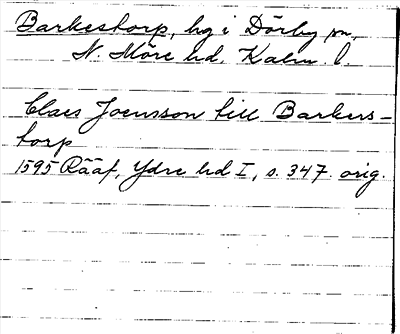 Barkestorp, hg i Dörby sn,
N. Möre hd. Kalm. l.
Claes Joensson till Barkers-
torp
1595 Rääf, Ydre hd I, s. 347. orig.